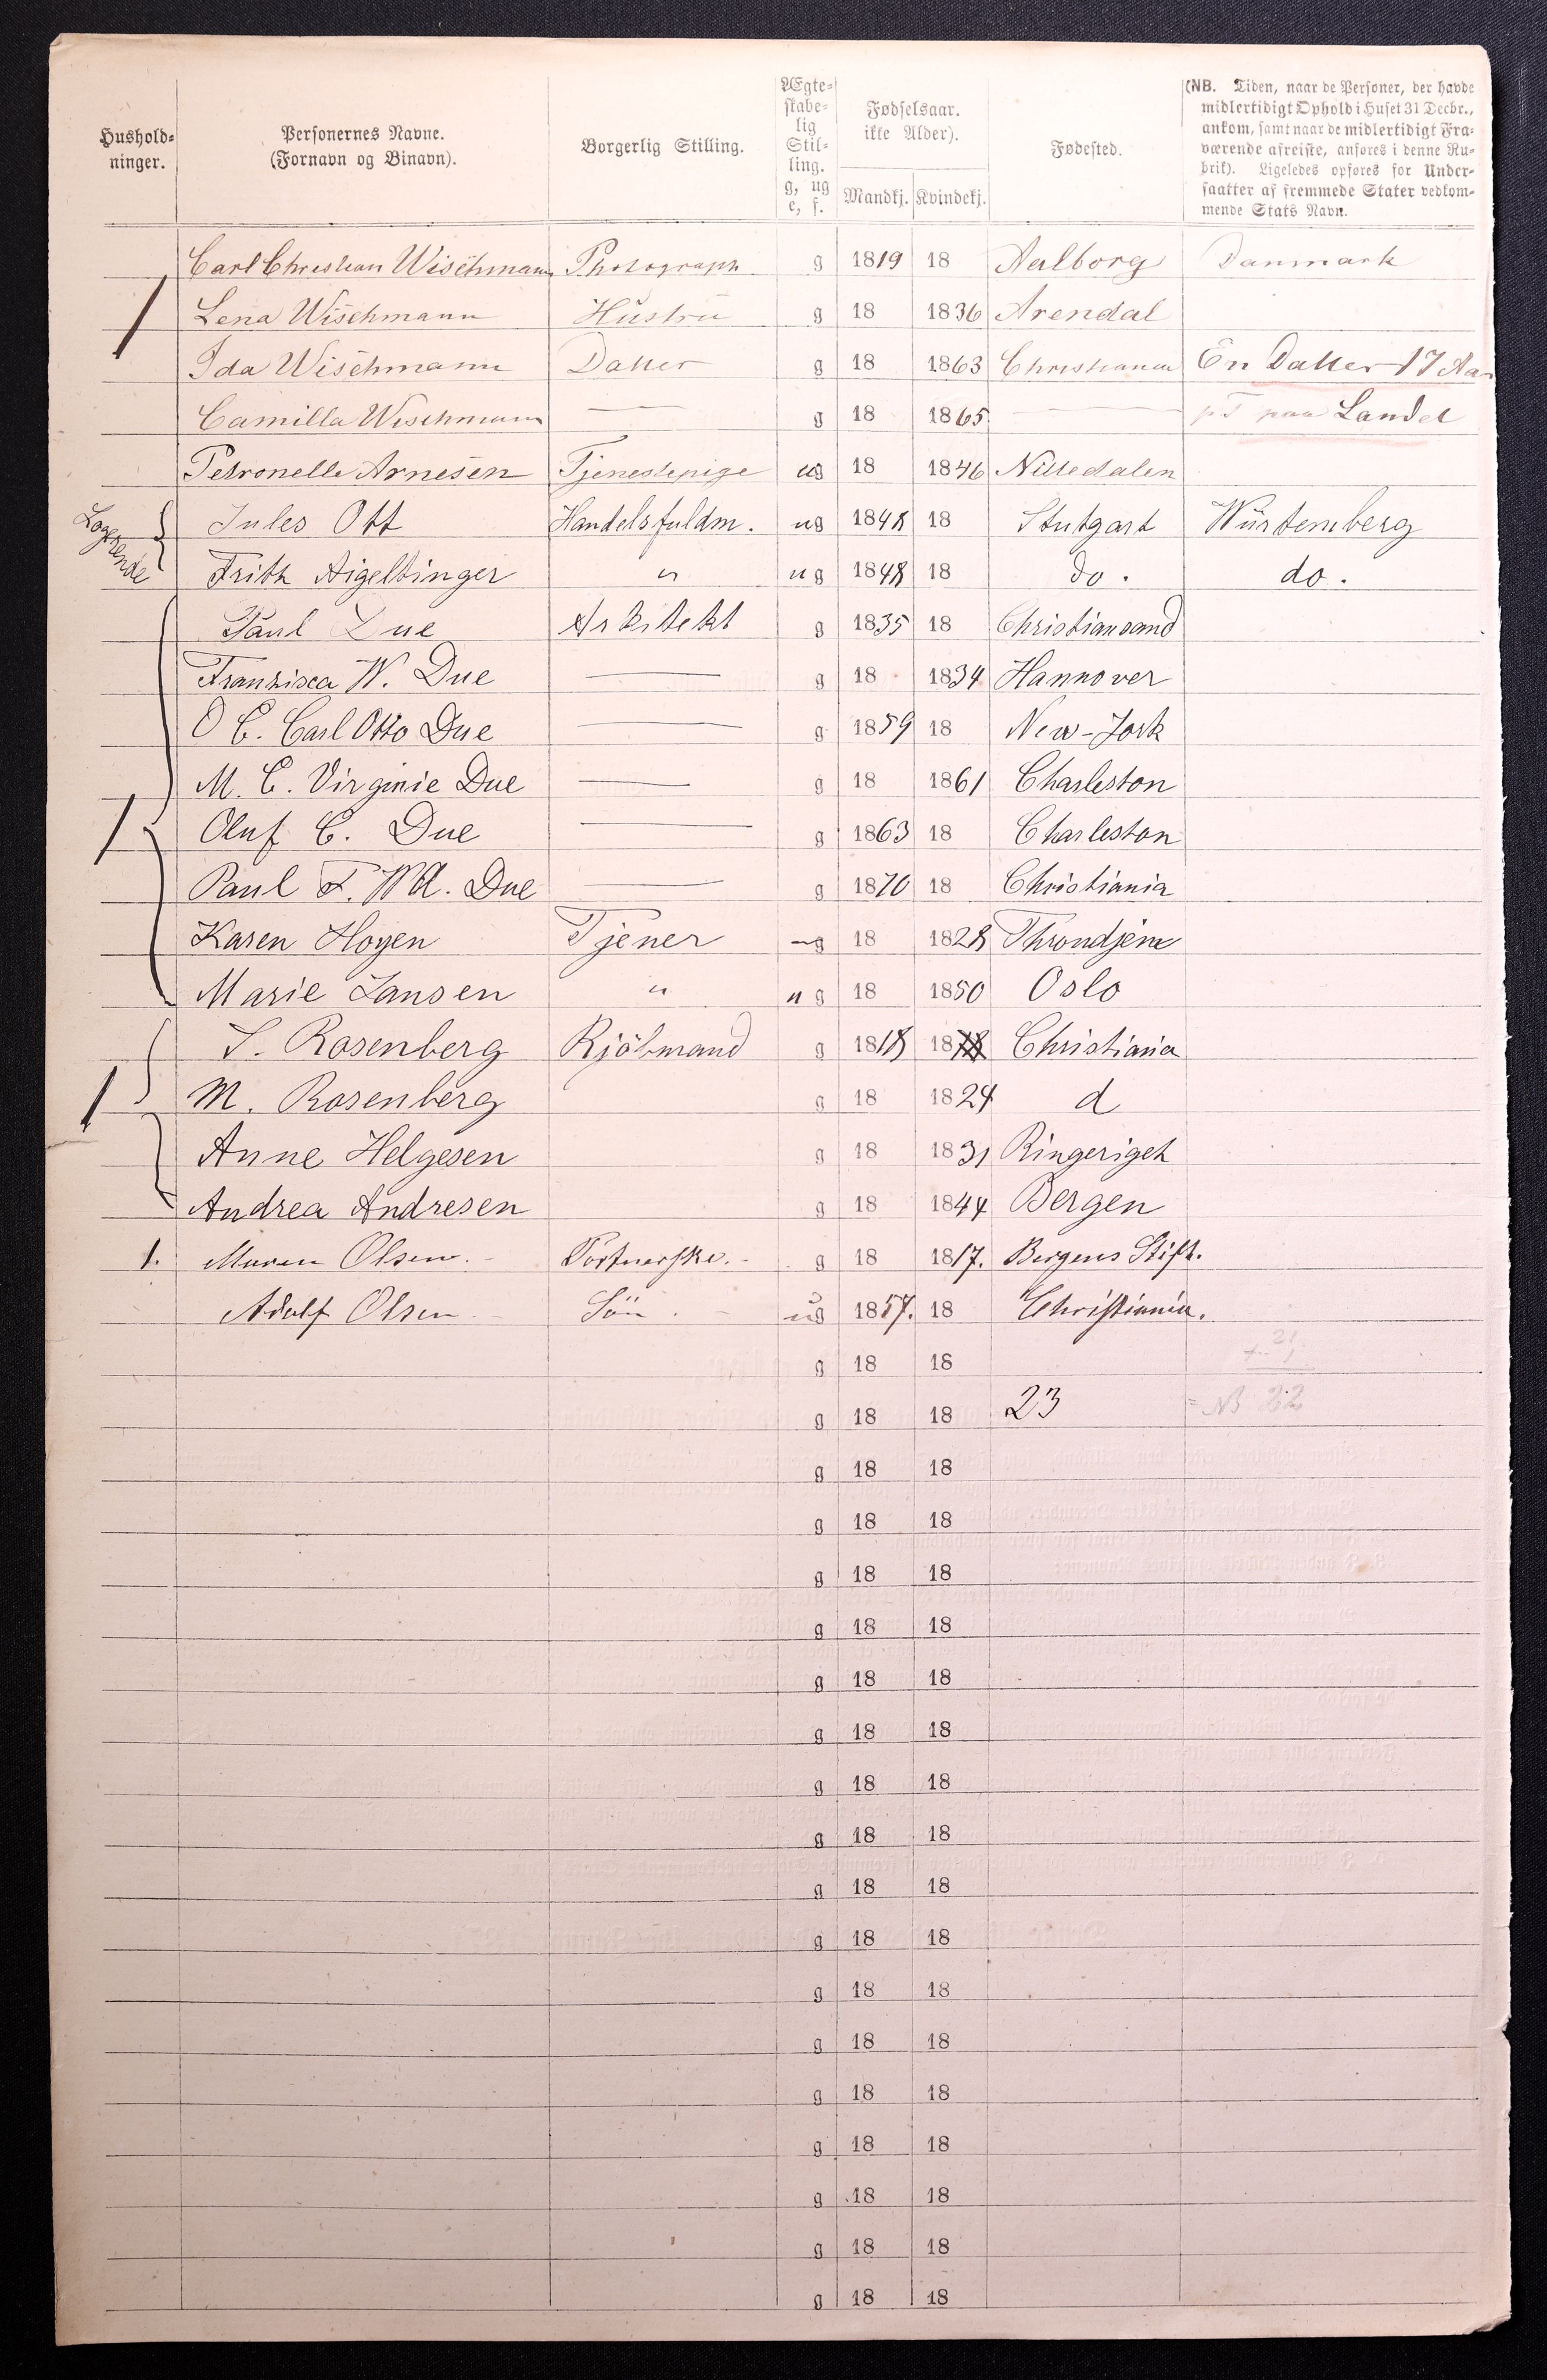 Hushold-
ninger.
Personernes Navne.
(Fornavn og Binavn).
Borgerlig Stilling.
Ægte-
skabe-
lig
Stil-
ling.
g, ug
e, f.
Fødselsaar.
ikke Alder).
Mandkj. Kvindekj.
Fødested.
(NB. Tiden, naar de Personer, der havde
midlertidigt Ophold i Huset 31 Decbr.,
ankom, samt naar de midlertidigt Fra-
værende afreiste, anføres i denne Ru-
brik). Ligeledes opføres for Under-
saatter af fremmede Stater vedkom-
mende Stats Navn.
Carl Christian Wischmann Photograph g 1819 18 Aalborg Danmark
Lena Wischmann Hustru g 18 1836 Arendal
Ida Wischmann Datter g 18 1863 Christiania En Datter 17 Aar
Camilla Wischmann — g 18 1865 — pT paa Landet
Petronelle Arnesen Tjenestepige ug 18 1846 Nittedalen
Logerende
Jules Ott Handelsfuldm. ug 1848 18 Stutgart Würtemberg
Frith Aigeltinger " ug 1848 18 do. do.
Paul Due Arkitekt g 1835 18 Christiansand
Franzisca W. Due — g 18 1834 Hannover
O C. Carl Otto Due — g 1859 18 New-York
M. C. Virginie Due — g 18 1861 Charleston
1 Oluf C. Due — g 1863 18 Charleston
Paul F. Wd. Due — g 1870 18 Christiania
Karen Hoyen Tjener ug 18 1828 Throndjem
Marie Jansen " ug 18 1850 Oslo
S. Rosenberg Kjöbmand g 1818 18 Christiania
1 M. Rosenberg g 18 1824 d
Anne Helgesen g 18 1831 Ringeriget
Andrea Andresen g 18 1844 Bergen
1. Maren Olsen Portnerske. g 18 1817. Bergens Stift.
Adolf Olsen Sön ug 1857. 18 Christiania.
g 18 18 21
g 18 18 23 = NB 22
g 18 18
g 18 18
g 18 18
g 18 18
g 18 18
g 18 18
g 18 18
g 18 18
g 18 18
g 18 18
g 18 18
g 18 18
g 18 18
g 18 18
g 18 18
g 18 18
g 18 18